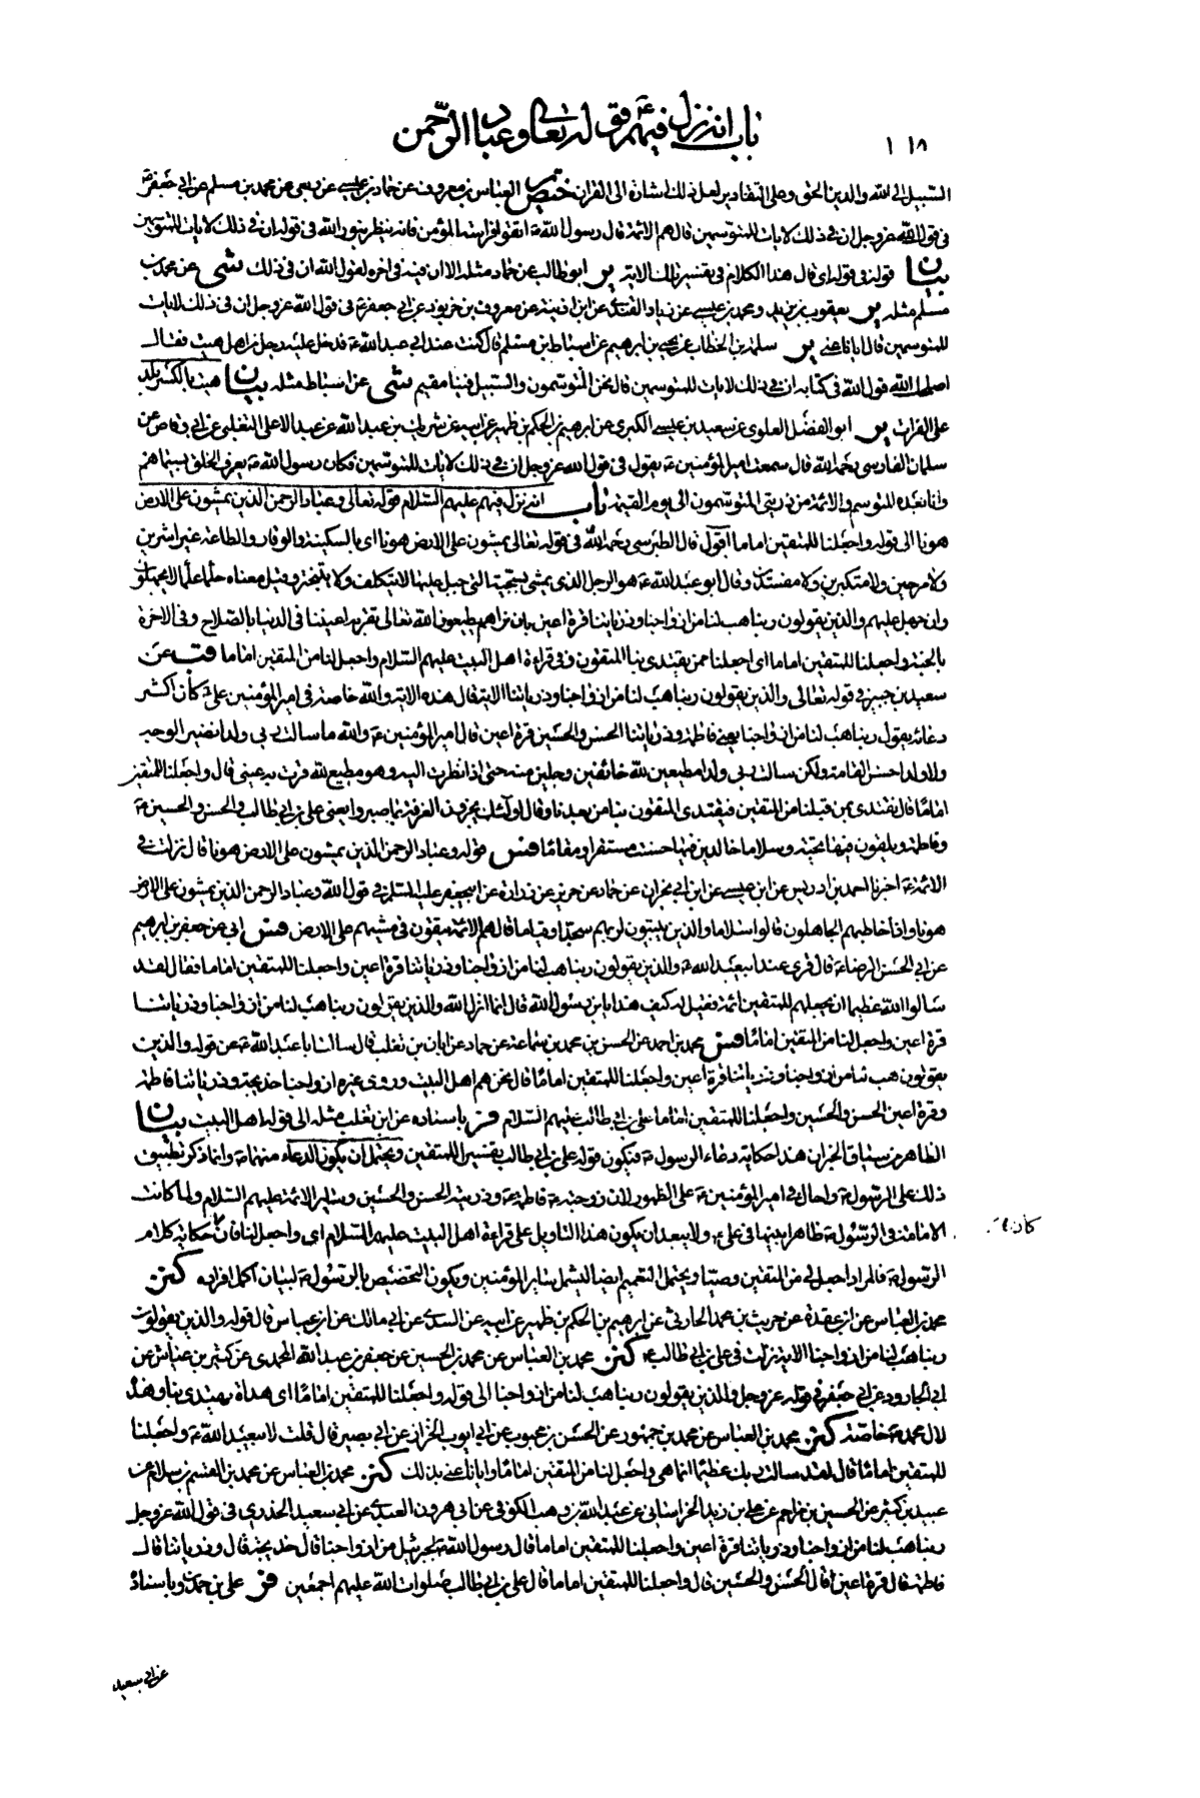 باب انه نزل فيهم ع قوله تعالى وعباد الرحمن
١١٨
السبيل الى الله والدين الحق وعلى التقادير لعل ذلك اشارة الى القران ختص العباس بن معروف عن حماد بن عيسى عن ربعى عن محمد بن مسلم عن ابى جعفر ع
فى قول الله عز وجل ان فى ذلك لايات للمتوسمين قال هم الائمة قال رسول الله ص اتقوا فراسة المؤمن فانه ينظر بنور الله فى قوله ان فى ذلك لايات للمتوسمين
بيان قوله فى قوله اى قال هذا الكلام فى تفسير تلك الاية ير ابو طالب عن حماد مثله الا ان فيه فى اخره لقول الله ان فى ذلك شى عن محمد بن
مسلم مثله ير يعقوب بن يزيد ومحمد بن عيسى عن زياد القندى عن ابن اذينة عن معروف بن خربوذ عن ابى جعفر ع فى قول الله عز وجل ان فى ذلك لايات
للمتوسمين قال ايانا عنى ير سلمة بن الخطاب عن يحيى بن ابرهيم عن اسباط بن سالم قال كنت عند ابى عبد الله ع فدخل عليه رجل من اهل هيت فقال
اصلحك الله قول الله فى كتابه ان فى ذلك لايات للمتوسمين قال نحن المتوسمون والسبيل فينا مقيم شى عن اسباط مثله بيان هيت بالكسر بلد
على الفرات ير ابو الفضل العلوى عن سعيد بن عيسى الكبرى عن ابرهيم بن الحكم بن ظهير عن ابيه عن شريك بن عبد الله عن عبد الاعلى الثعلبى عن ابى وقاص عن
سلمان الفارسى رحمه الله قال سمعت امير المؤمنين ع يقول فى قول الله عز وجل ان فى ذلك لايات للمتوسمين فكان رسول الله ص يعرف الخلق بسيماهم
وانا بعده المتوسم والائمة من ذريتى المتوسمون الى يوم القيمة باب انه نزل فيهم عليهم السلام قوله تعالى وعباد الرحمن الذين يمشون على الارض
هونا الى قوله واجعلنا للمتقين اماما اقول قال الطبرسى رحمه الله فى قوله تعالى يمشون على الارض هونا اى بالسكينة والوقار والطاعة غير اشرين
ولا مرحين ولا متكبرين ولا مفسدين وقال ابو عبد الله ع هو الرجل الذى يمشى بسجيته التى جبل عليها لا يتكلف ولا يتبختر وقيل معناه حلماء علماء لا يجهلون
وان جهل عليهم والذين يقولون ربنا هب لنا من ازواجنا وذرياتنا قرة اعين بان نراهم يطيعون الله تعالى تقر بهم اعيننا فى الدنيا بالصلاح وفى الاخرة
بالجنة واجعلنا للمتقين اماما اى اجعلنا ممن يقتدى بنا المتقون وفى قراءة اهل البيت عليهم السلام واجعل لنا من المتقين اماما قب عن
سعيد بن جبير فى قوله تعالى والذين يقولون ربنا هب لنا من ازواجنا وذرياتنا الاية قال هذه الاية والله خاصة فى امير المؤمنين على ع كان اكثر
دعائه يقول ربنا هب لنا من ازواجنا يعنى فاطمة وذرياتنا الحسن والحسين قرة اعين قال امير المؤمنين ع والله ما سالت ربى ولدا نضير الوجه
ولا ولدا حسن القامة ولكن سالت ربى ولدا مطيعين لله خائفين وجلين منه حتى اذا نظرت اليه وهو مطيع لله قرت به عينى قال واجعلنا للمتقين
اماما قال نقتدى بمن قبلنا من المتقين فيقتدى المتقون بنا من بعدنا وقال اولئك يجزون الغرفة بما صبروا يعنى على بن ابى طالب والحسن والحسين ع
وفاطمة ويلقون فيها تحية وسلاما خالدين فيها حسنت مستقرا ومقاما فس قوله وعباد الرحمن الذين يمشون على الارض هونا قال نزلت فى
الائمة ع اخبرنا احمد بن ادريس عن ابن عيسى عن ابن ابى نجران عن حماد عن حريز عن زرارة عن ابى جعفر عليه السلام فى قول الله وعباد الرحمن الذين يمشون على الارض
هونا واذا خاطبهم الجاهلون قالوا سلاما والذين يبيتون لربهم سجدا وقياما قال هم الائمة يتقون فى مشيهم على الارض فس ابى عن جعفر بن ابرهيم
عن ابى الحسن الرضا ع قال قرئ عند ابى عبد الله ع والذين يقولون ربنا هب لنا من ازواجنا وذرياتنا قرة اعين واجعلنا للمتقين اماما فقال لقد
سالوا الله عظيما ان يجعلهم للمتقين ائمة فقيل له كيف هذا يا بن رسول الله قال انما انزل الله والذين يقولون ربنا هب لنا من ازواجنا وذرياتنا
قرة اعين واجعل لنا من المتقين اماما فس محمد بن احمد عن الحسن بن محمد بن سماعة عن حماد عن ابان بن تغلب قال سالت ابا عبد الله ع عن قوله والذين
يقولون هب لنا من ازواجنا وذرياتنا قرة اعين واجعلنا للمتقين اماما قال نحن هم اهل البيت وروى غيره ازواجنا خديجة وذرياتنا فاطمة
وقرة اعين الحسن والحسين واجعلنا للمتقين اماما على بن ابى طالب عليهم السلام فر باسناده عن ابن تغلب مثله الى قوله اهل البيت بيان
الظاهر من سياق الخبر ان هذا حكاية دعاء الرسول ص فيكون قوله على بن ابى طالب تفسير اللمتقين ويحتمل ان يكون الدعاء منهما ع وانما ذكر تطبيق
ذلك على الرسول ص واحال فى امير المؤمنين ع على الظهور لان زوجته ع فاطمة ع وذريته الحسن والحسين وساير الائمة عليهم السلام ولما كانت
الامامة فى الرسول ص ظاهرا بينها فى على ع ولا يبعد ان يكون هذا التاويل على قراءة اهل البيت عليهم السلام اى واجعل لنا فان حكاية كلام
كان
الرسول ص فالمراد اجعل لى من المتقين وصيا ويحتمل التعميم ايضا ليشمل ساير المؤمنين ويكون التخصيص بالرسول ص لبيان اكمل افراده كنز
محمد بن العباس عن ابن عقدة عن حريث بن محمد الحارثى عن ابرهيم بن الحكم بن ظهير عن ابيه عن السدى عن ابى مالك عن ابن عباس قال قوله والذين يقولون
ربنا هب لنا من ازواجنا الاية نزلت فى على بن ابى طالب ع كنز محمد بن العباس عن محمد بن الحسين عن جعفر بن عبد الله المحمدى عن كثير بن عياش عن
ابى الجارود عن ابى جعفر ع فى قوله عز وجل والذين يقولون ربنا هب لنا من ازواجنا الى قوله واجعلنا للمتقين اماما اى هداة يهتدى بنا وهذه
لال محمد ص خاصة كنز محمد بن العباس عن محمد بن جمهور عن الحسن بن محبوب عن ابى ايوب الخزاز عن ابى بصير قال قلت لابى عبد الله ع واجعلنا
للمتقين اماما قال لقد سالت ربك عظيما انما هى واجعل لنا من المتقين اماما وايانا عنى بذلك كنز محمد بن العباس عن محمد بن القسم بن سلام عن
عبيد بن كثير عن الحسين بن مزاحم عن على بن زيد الخراسانى عن عبد الله بن وهب الكوفى عن ابى هرون العبدى عن ابى سعيد الخدرى فى قول الله عز وجل
ربنا هب لنا من ازواجنا وذرياتنا قرة اعين واجعلنا للمتقين اماما قال رسول الله ص لجبرئيل من ازواجنا قال خديجة قال وذرياتنا قال
فاطمة قال قرة اعين قال الحسن والحسين قال واجعلنا للمتقين اماما قال على بن ابى طالب صلوات الله عليهم اجمعين فر على بن حمدون باسناده
عن ابى سعيد